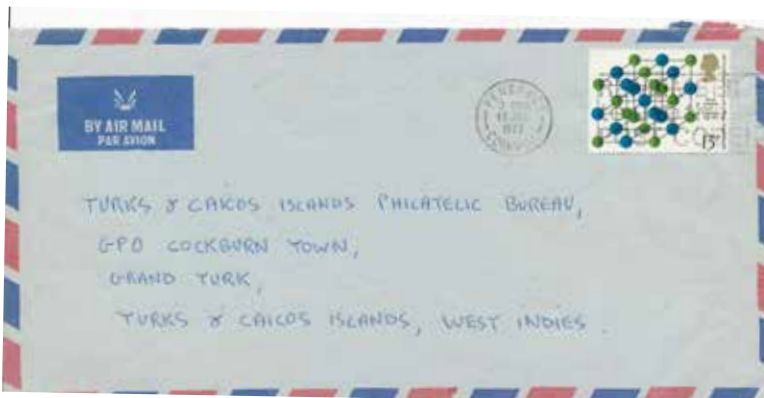 BY AIR MAIL
PAR AVION
1977
13P
TURKS & CAICOS ISLANDS PHILATELIC BUREAU,
GPO COCKBURN TOWN,
GRAND TURK,
TURKS & CAICOS ISLANDS, WEST INDIES.